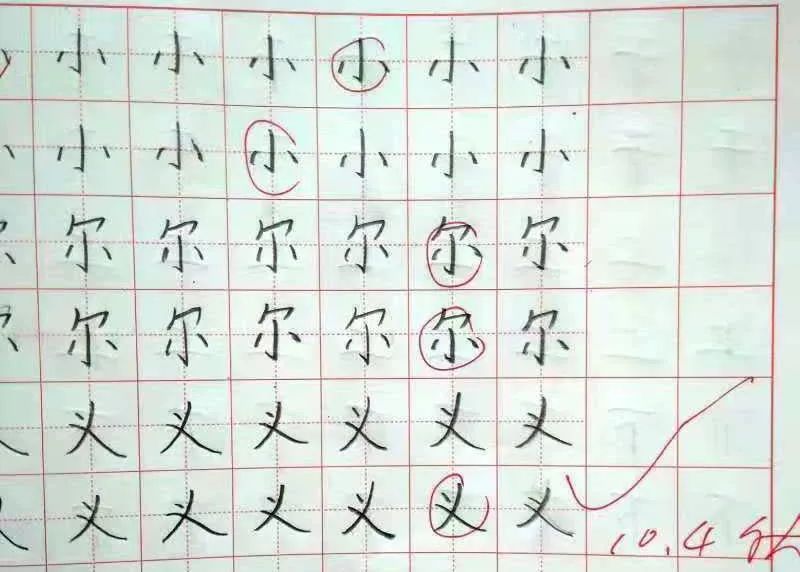 小 小 小 小 小 小
小 小 小 小 小 小
尔 尔 尔 尔 尔 尔
尔 尔 尔 尔 尔 尔
义 义 义 义 义 义
义 义 义 义 义 义
10.4